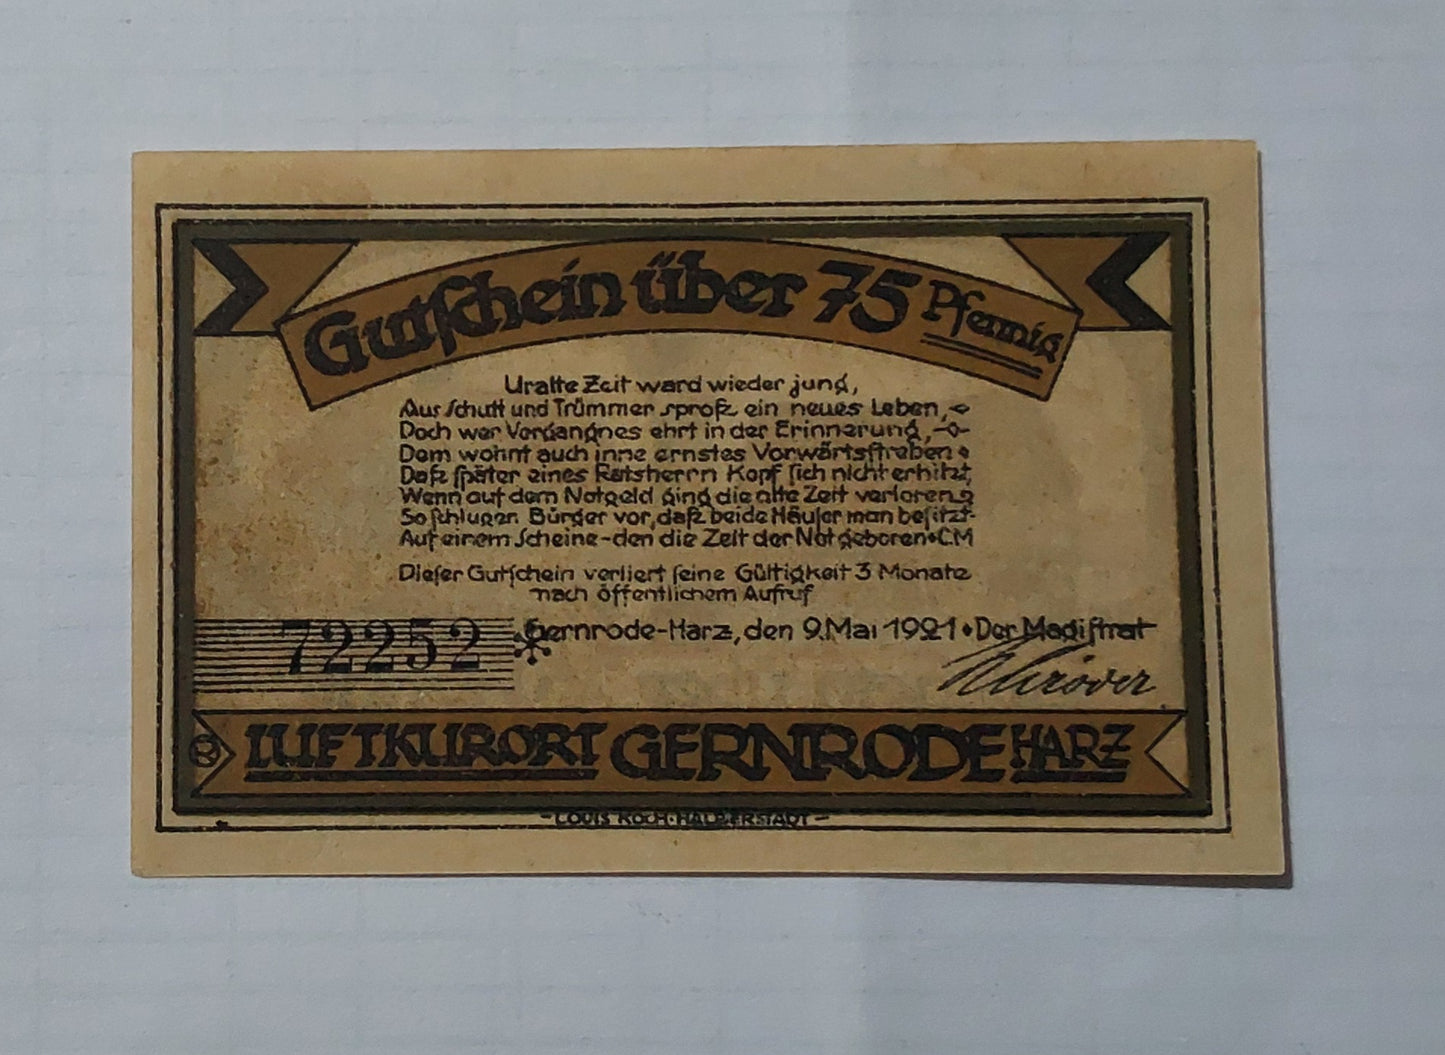 Gutschein über 75 Pfennig
Uralte Zeit ward wieder jung,
Aus Schutt und Trümmer sproß ein neues Leben,
Doch wer Vergangnes ehrt in der Erinnerung,
Dem wohnt auch inne ernstes Vorwärtsstreben
Daß später eines Ratsherrn Kopf sich nicht erhitzt,
Wenn auf dem Notgeld ging die alte Zeit verloren
So schlugen Bürger vor, daß beide Häuser man besitzt
Auf einem Scheine-den die Zeit der Not geboren•CM
Dieser Gutschein verliert seine Gültigkeit 3 Monate
nach öffentlichem Aufruf
72252
Gernrode-Harz, den 9.Mai 1921•Der Magistrat
LUFTKURORT GERNRODE HARZ
-LOUIS KOCH·HALBERSTADT-